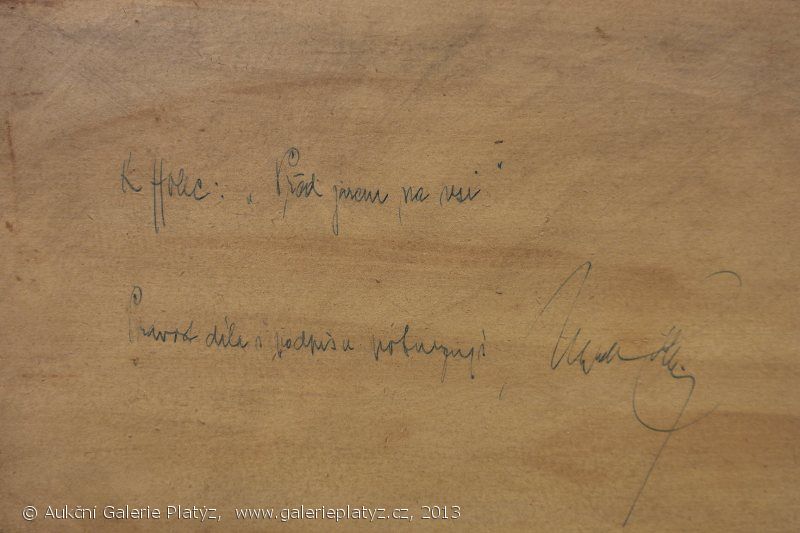 K Holec: „Před jarem na vsi"
Pravost díla i podpisu potvrzuji
© Aukční Galerie Platýz, www.galerieplatyz.cz, 2013